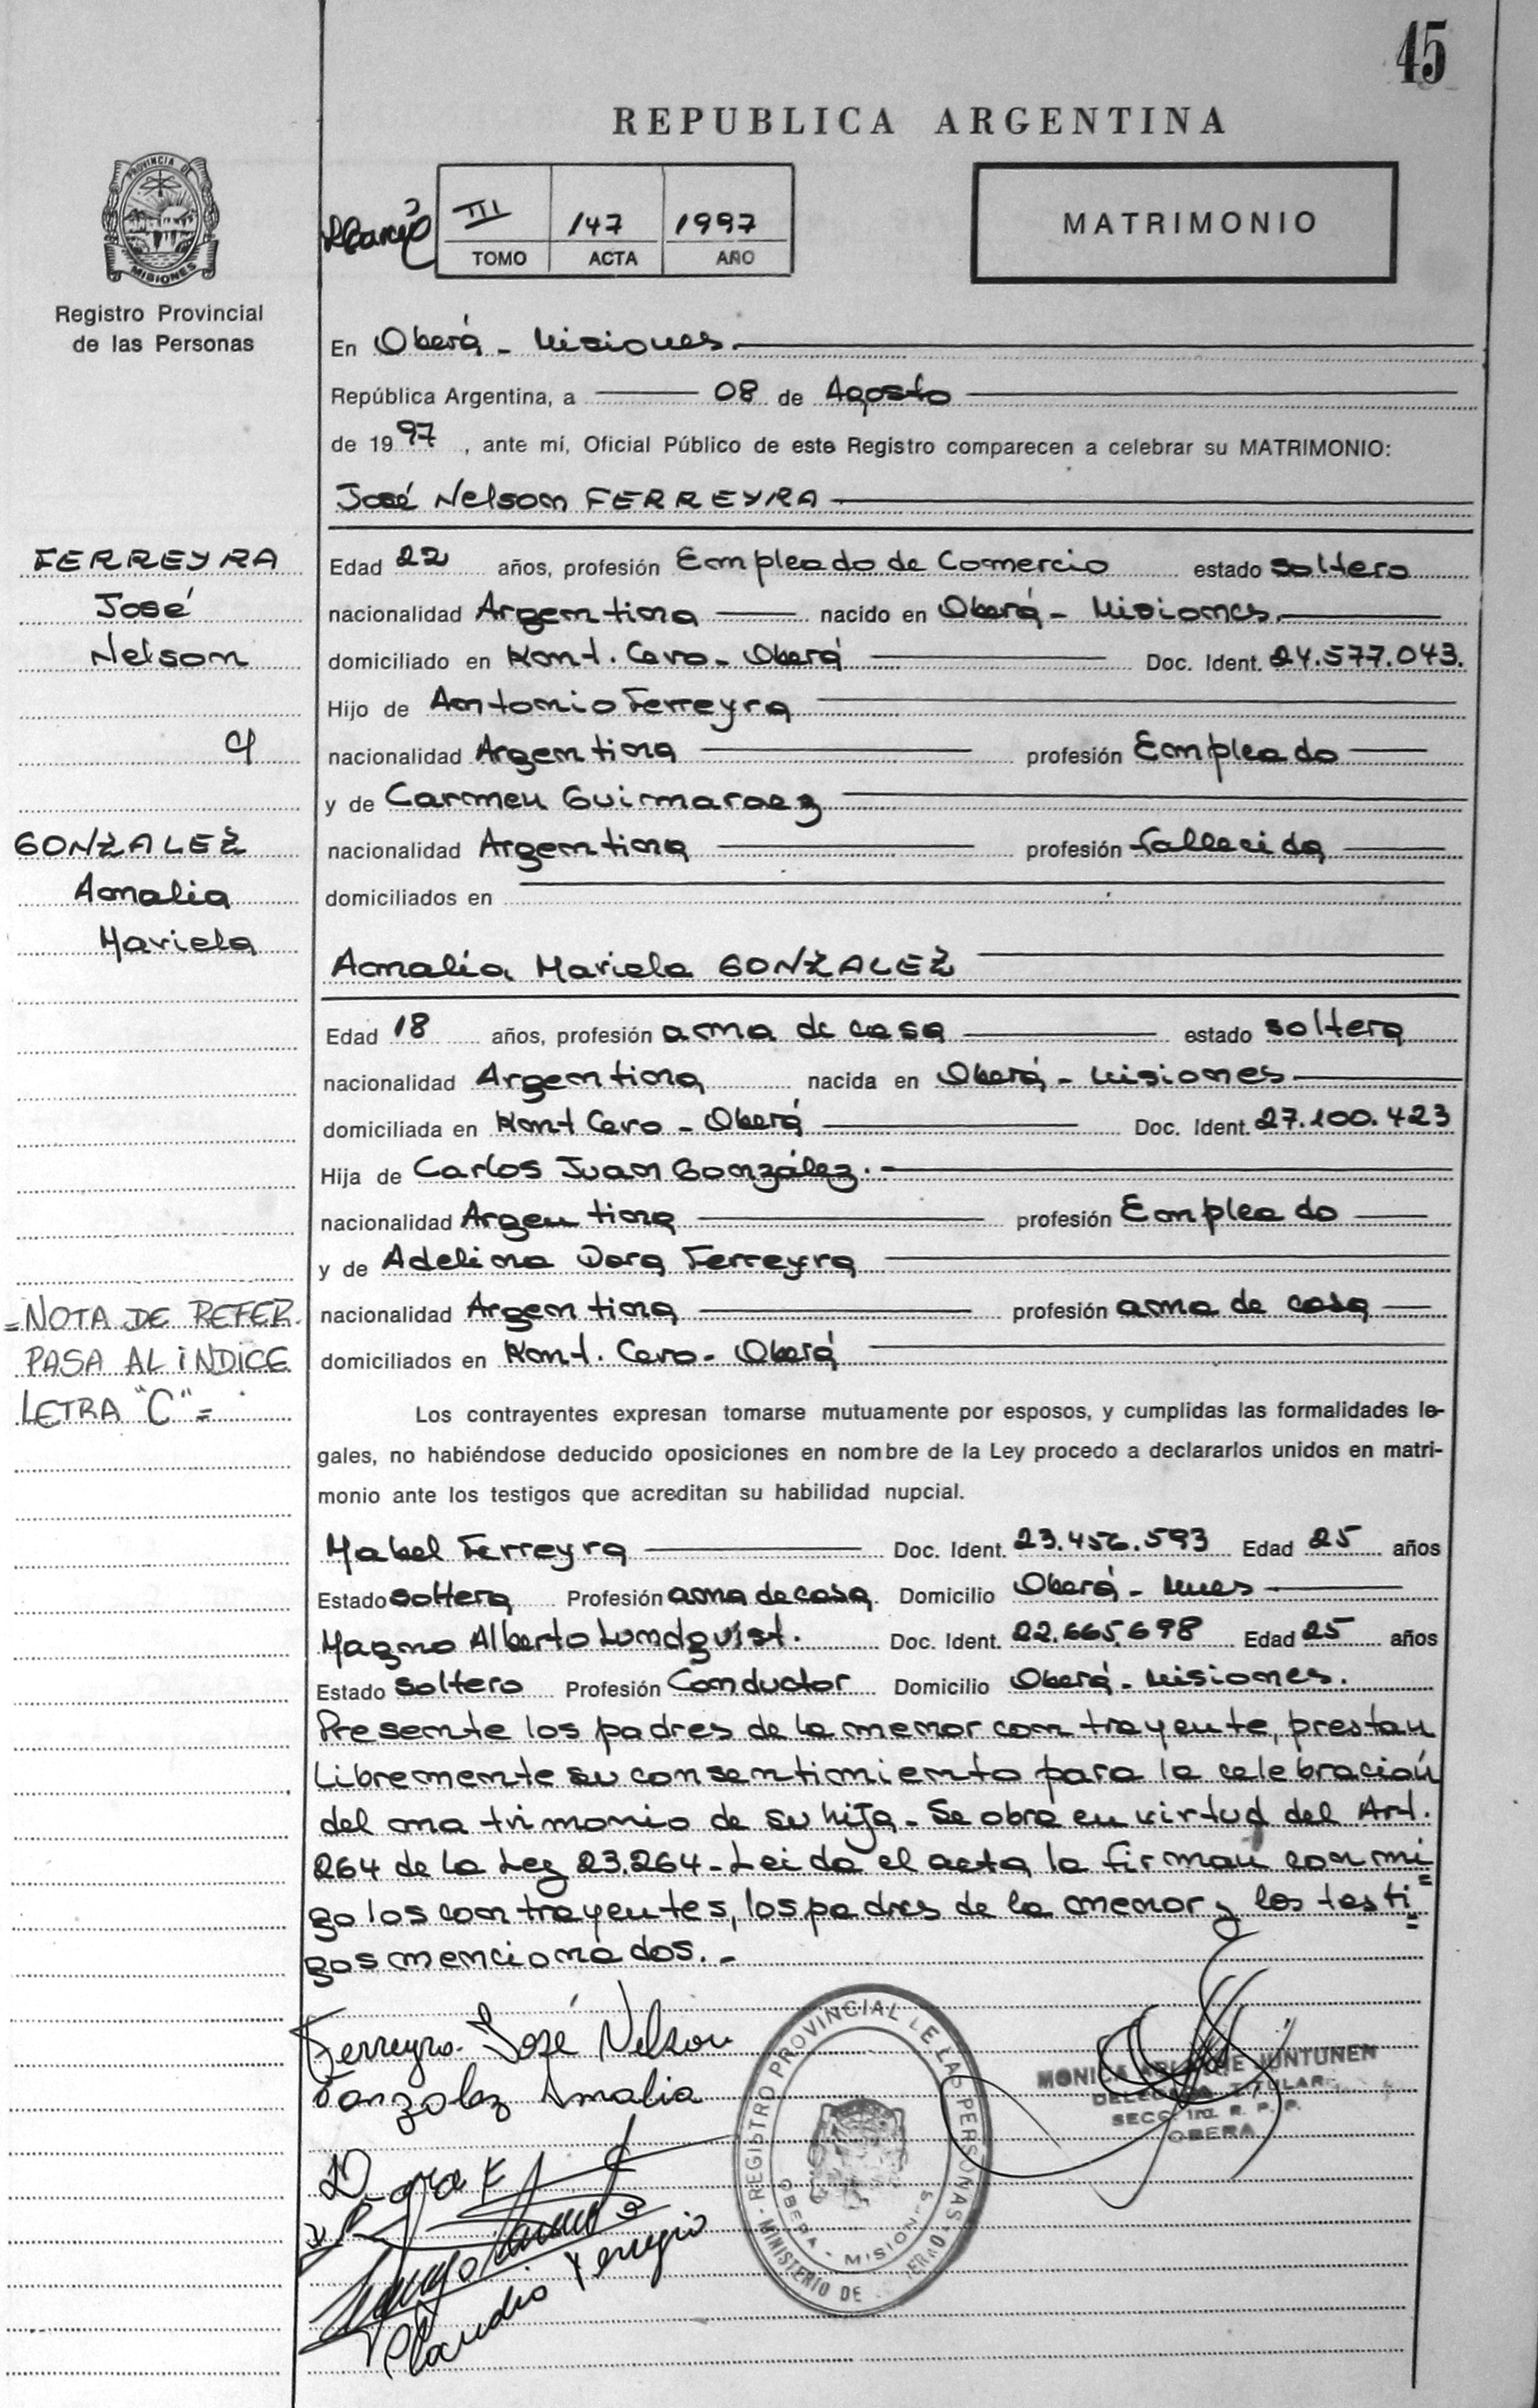 45
REPUBLICA ARGENTINA
PROVINCIA DE
MISIONES
Registro Provincial
de las Personas
III 147 1997
TOMO ACTA AÑO
MATRIMONIO
En Oberá - Misiones.
República Argentina, a 08 de Agosto
de 1997, ante mí, Oficial Público de este Registro comparecen a celebrar su MATRIMONIO:
José Nelson FERREYRA
FERREYRA
José
Nelson
c/
GONZALEZ
Amalia
Mariela
Edad 22 años, profesión Empleado de Comercio estado soltero
nacionalidad Argentina nacido en Oberá - Misiones.
domiciliado en Kont. Cero - Oberá Doc. Ident. 24.577.043.
Hijo de Antonio Ferreyra
nacionalidad Argentina profesión Empleado
y de Carmen Guimaraez
nacionalidad Argentina profesión fallecida
domiciliados en
Amalia Mariela GONZALEZ
Edad 18 años, profesión ama de casa estado soltera
nacionalidad Argentina nacida en Oberá - Misiones
domiciliada en Kont Cero - Oberá Doc. Ident. 27.100.423
Hija de Carlos Juan González.
nacionalidad Argentina profesión Empleado
y de Adelina Dora Ferreyra
nacionalidad Argentina profesión ama de casa
domiciliados en Kont. Cero - Oberá
=NOTA DE REFER.
PASA AL INDICE
LETRA "C"=
Los contrayentes expresan tomarse mutuamente por esposos, y cumplidas las formalidades le-
gales, no habiéndose deducido oposiciones en nombre de la Ley procedo a declararlos unidos en matri-
monio ante los testigos que acreditan su habilidad nupcial.
Mabel Ferreyra Doc. Ident. 23.456.593 Edad 25 años
Estado soltera Profesión ama de casa Domicilio Oberá - Mnes
Magno Alberto Lundqvist. Doc. Ident. 22.665.698 Edad 25 años
Estado soltero Profesión Conductor Domicilio Oberá - Misiones.
Presente los padres de la menor contrayente, prestan
libremente su consentimiento para la celebración
del matrimonio de su hija - Se obra en virtud del Art.
264 de la Ley 23.264 - Leida el acta, la firman conmi=
go los contrayentes, los padres de la menor y los testi=
gos mencionados. -
Ferreyra José Nelson
Gonzalez Amalia
Dora F
REGISTRO PROVINCIAL DE LAS PERSONAS
MINISTERIO DE
OBERA - MISIONES
MONICA JUNTUNEN
DELEGADA TITULAR
SECC. 1ra. R. P. P.
OBERA